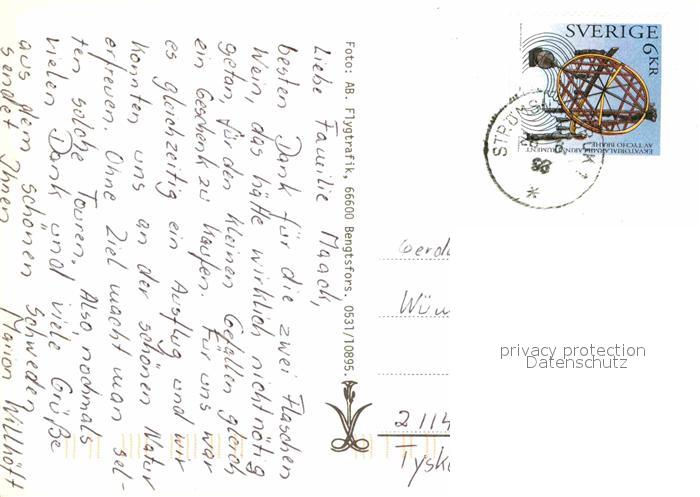 Liebe Familie Maack,
besten Dank für die zwei Flaschen
Wein, das hätte wirklich nicht nötig
getan, für den kleinen Gefallen gleich
ein Geschenk zu kaufen. Für uns war
es gleichzeitig ein Ausflug und wir
konnten uns an der schönen Natur
erfreuen. Ohne Ziel macht man sel-
ten solche Touren. Also nochmals
vielen Dank und viele Grüße
aus dem schönen Schweden
sendet Ihnen Marion Willhöft
Foto: AB. Flygtrafik, 66600 Bengtsfors. 0531/10895.
SVERIGE
6 KR
EKVATORIALARMILLARINSTRUMENT
AV TYCHO BRAHE
Gerda
Wüm
privacy protection
Datenschutz
2114
Tysk